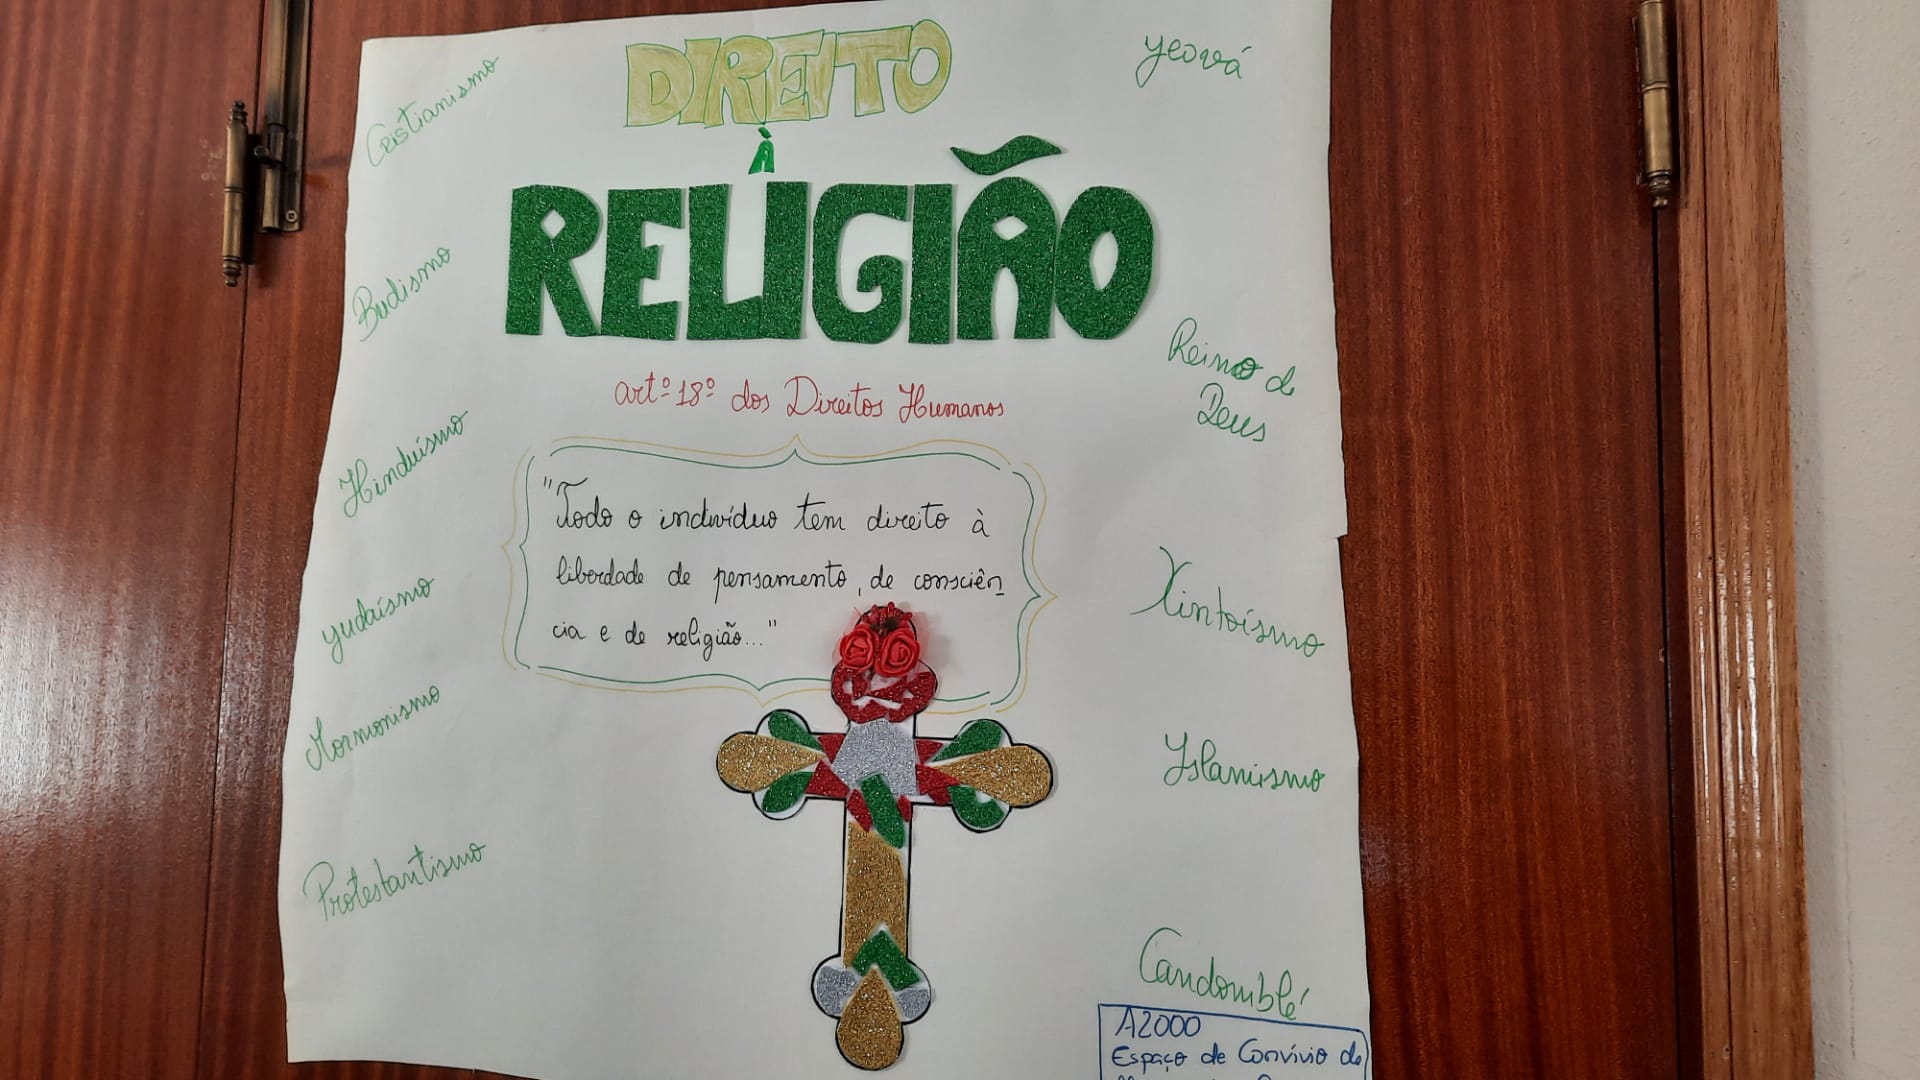 DIREITO
À
RELIGIÃO
artº 18º dos Direitos Humanos
"Todo o indivíduo tem direito à
liberdade de pensamento, de consciên
cia e de religião..."
Cristianismo
Budismo
Hinduísmo
Yudaísmo
Mormonismo
Protestantismo
Yeová
Reino de
Deus
Xintoísmo
Yslamismo
Candomblé
A2000
Espaço de Convívio de